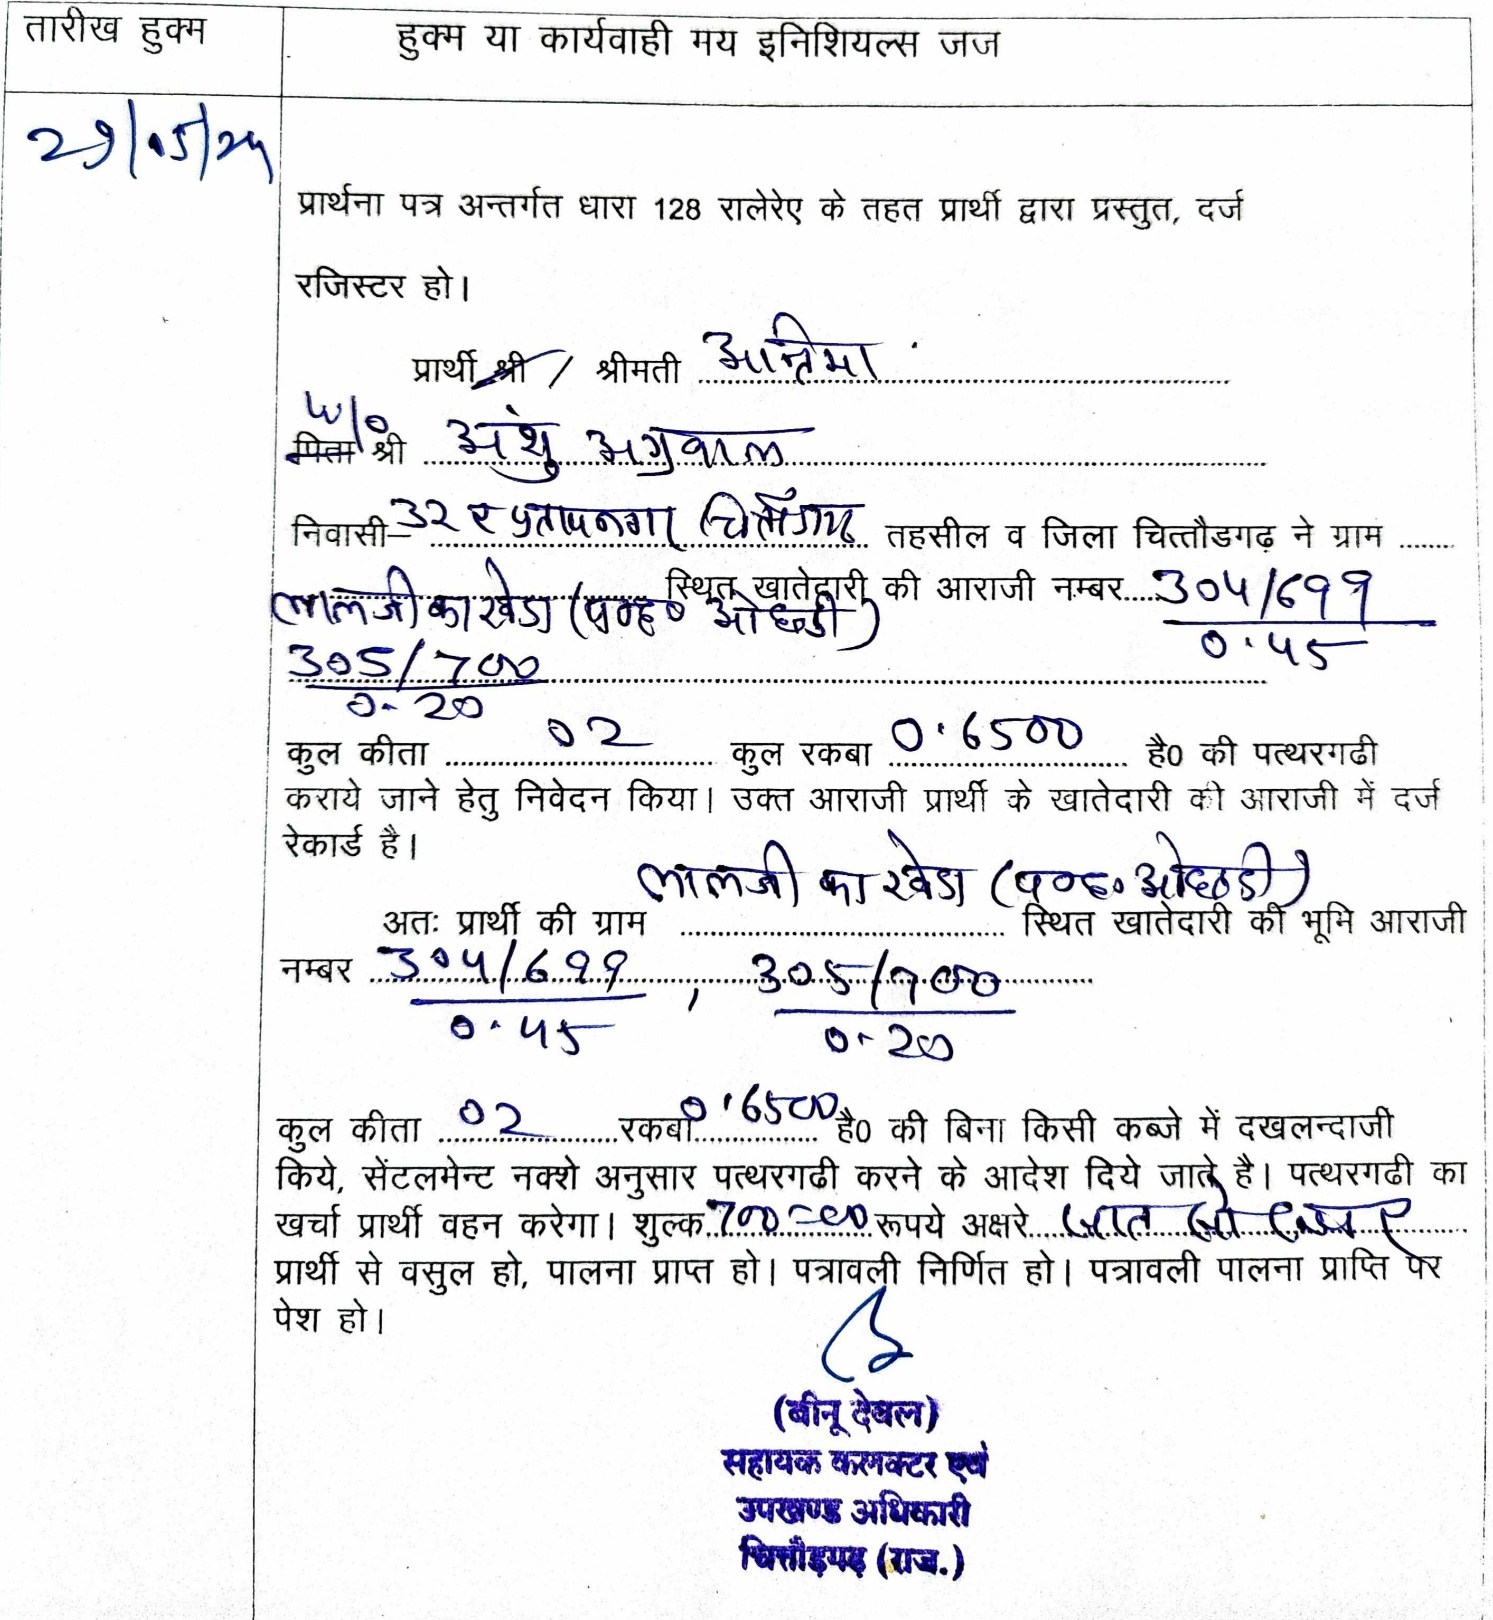 तारीख हुक्म
हुक्म या कार्यवाही मय इनिशियल्स जज
29/05/24
प्रार्थना पत्र अन्तर्गत धारा 128 रालेरेए के तहत प्रार्थी द्वारा प्रस्तुत, दर्ज
रजिस्टर हो।
प्रार्थी श्री / श्रीमती
W/o
पिता श्री अंशु अग्रवाल
निवासी– 32 ए प्रतापनगर चित्तौडगढ़ तहसील व जिला चित्तौडगढ़ ने ग्राम ........
लालजी का खेडा (प०ह० ओछडी) स्थित खातेदारी की आराजी नम्बर.....304/699
0.45
305/700
0.20
कुल कीता 02 कुल रकबा 0.6500 है0 की पत्थरगढी
कराये जाने हेतु निवेदन किया। उक्त आराजी प्रार्थी के खातेदारी की आराजी में दर्ज
रेकार्ड है।
लालजी का खेडा (प०ह० ओछडी)
अतः प्रार्थी की ग्राम ........................ स्थित खातेदारी की भूमि आराजी
नम्बर 304/699 , 305/700
0.45 0.20
कुल कीता 02 रकबा 0.6500 है0 की बिना किसी कब्जे में दखलन्दाजी
किये, सेंटलमेन्ट नक्शे अनुसार पत्थरगढी करने के आदेश दिये जाते है। पत्थरगढी का
खर्चा प्रार्थी वहन करेगा। शुल्क 700=00 रूपये अक्षरे सात सौ
प्रार्थी से वसुल हो, पालना प्राप्त हो। पत्रावली निर्णित हो। पत्रावली पालना प्राप्ति पर
पेश हो।
(बीनू देवल)
सहायक कलक्टर एवं
उपखण्ड अधिकारी
चित्तौड़गढ़ (राज.)